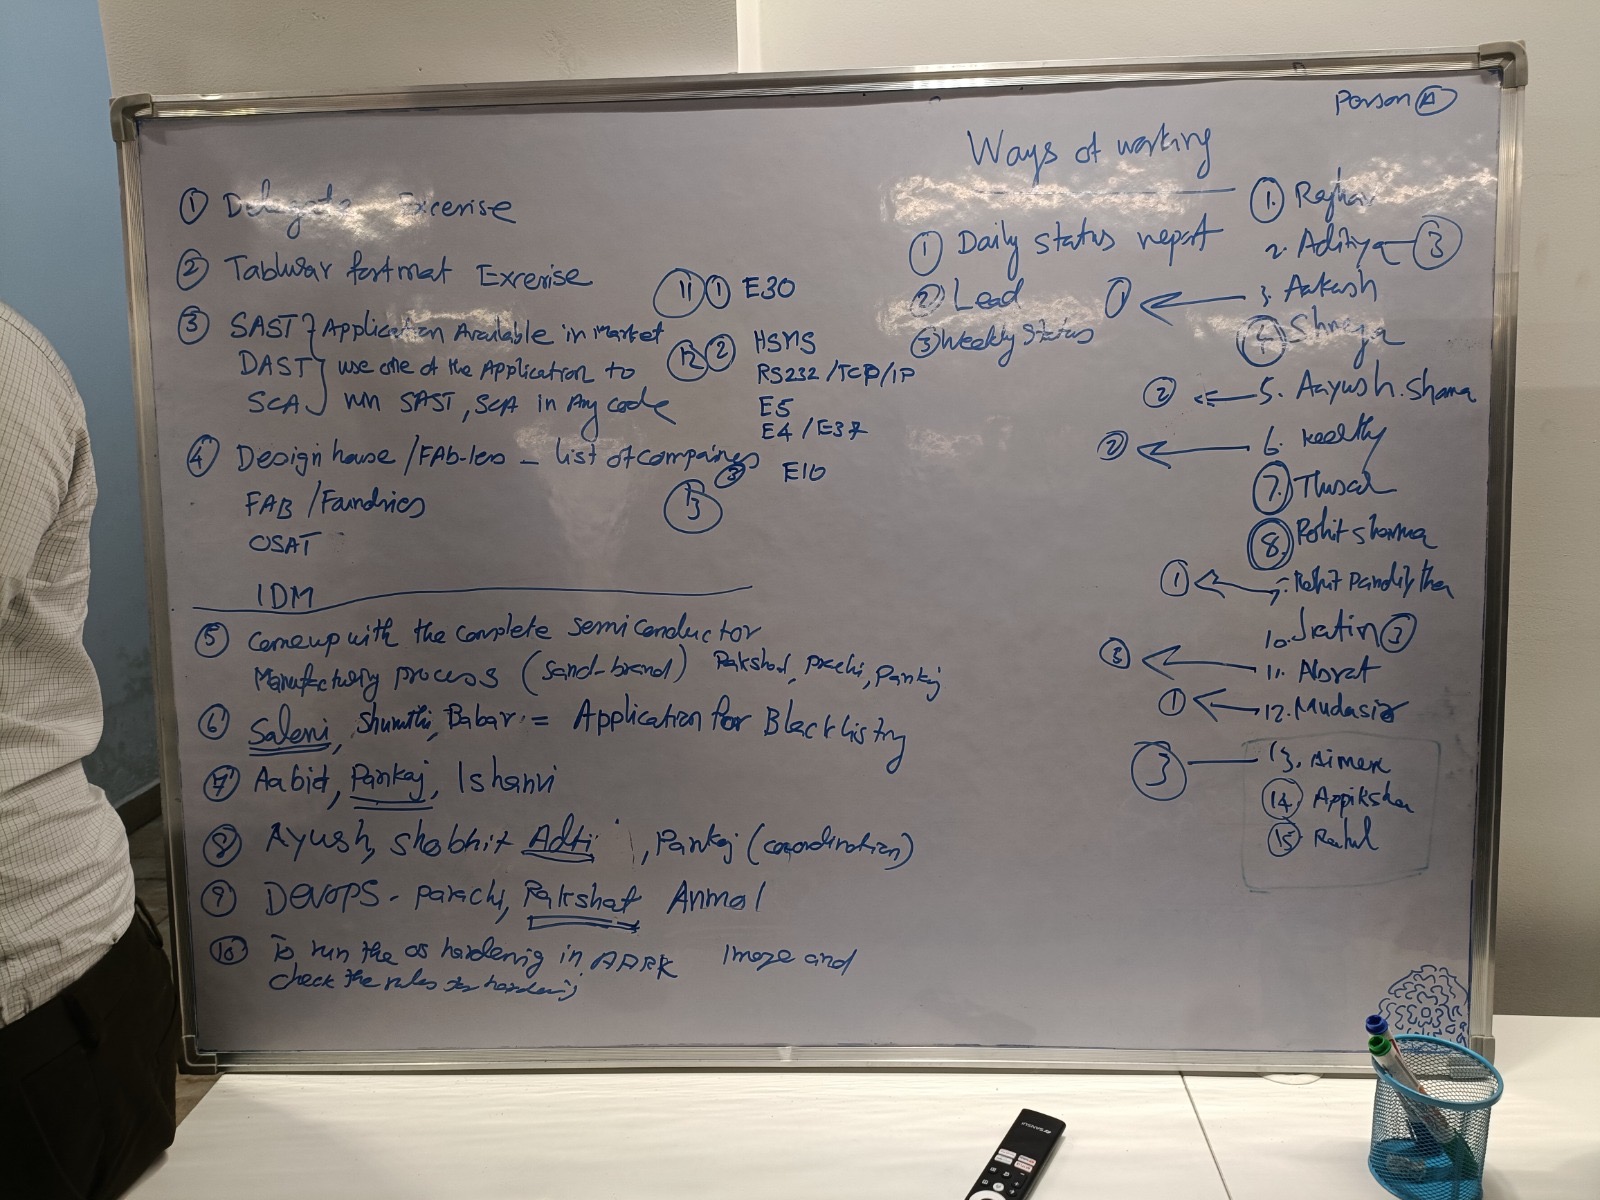 Person A
Ways of working
① Delegate Excerise
② Tabluar fortmat Exrerise
③ SAST } Application Available in market
DAST } use one of the Application to
SCA } run SAST, SCA in Any code
④ Design house / FAb-less - list of compaines
FAB / Foundries
OSAT
IDM
⑤ Come up with the complete semiconductor
Manufactury process (Sand-brand) Rakshad, Prachi, Pankaj
⑥ Saleni, Shumthi, Babar = Application for Blacklisting
⑦ Aabid, Pankaj, Ishanvi
⑧ Ayush, Shobhit Aditi, Pankaj (coordination)
⑨ DEVOPS - Parachi, Rakshat Anmol
⑩ To run the os hardening in AARK Image and
check the rules for hardening
⑪ ① E30
⑫ ② HSMS
RS232 / TCP / IP
E5
E4 / E37
⑬ ③ E10
① Daily status report
② Lead
③ Weekly Status
1. Raghav
2. Aditya ③
① ← 3. Aakash
4. Shreya
② ← 5. Aayush. Shama
② ← 6. Reddy
7.
8. Rohit sharma
① ← 9. Rohit Panditha
10. Jatin ③
③ ← 11. Abrat
① ← 12. Mudasir
③ 13. Simran
14. Appiksha
15. Rahul
SANSUI